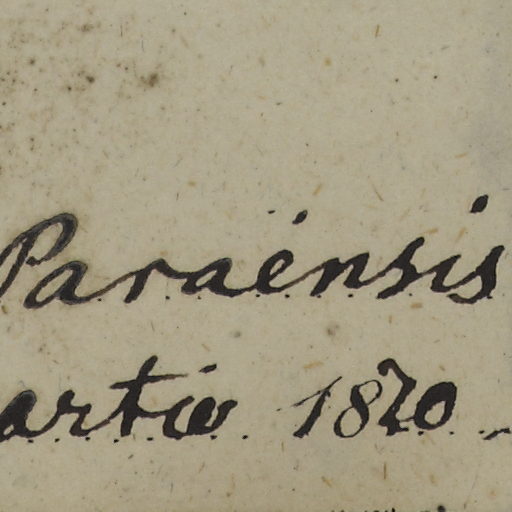 Paraënsis
artio 1820